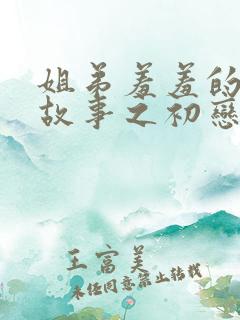 姐弟羞羞的
故事之初戀
王富美
未经同意禁止转载